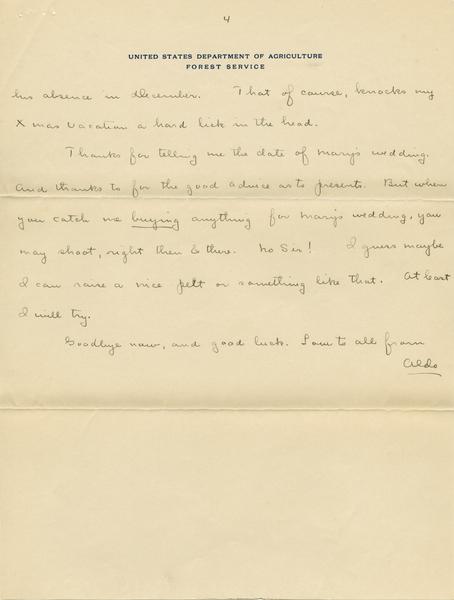 4
UNITED STATES DEPARTMENT OF AGRICULTURE
FOREST SERVICE
his absence in December. That of course, knocks my
Xmas vacation a hard lick in the head.
Thanks for telling me the date of Mary's wedding.
And thanks to for the good advice as to presents. But when
you catch me buying anything for Mary's wedding, you
may shoot, right then & there. No Sir! I guess maybe
I can raise a nice pelt or something like that. At least
I will try.
Goodbye now, and good luck. Love to all from
Aldo